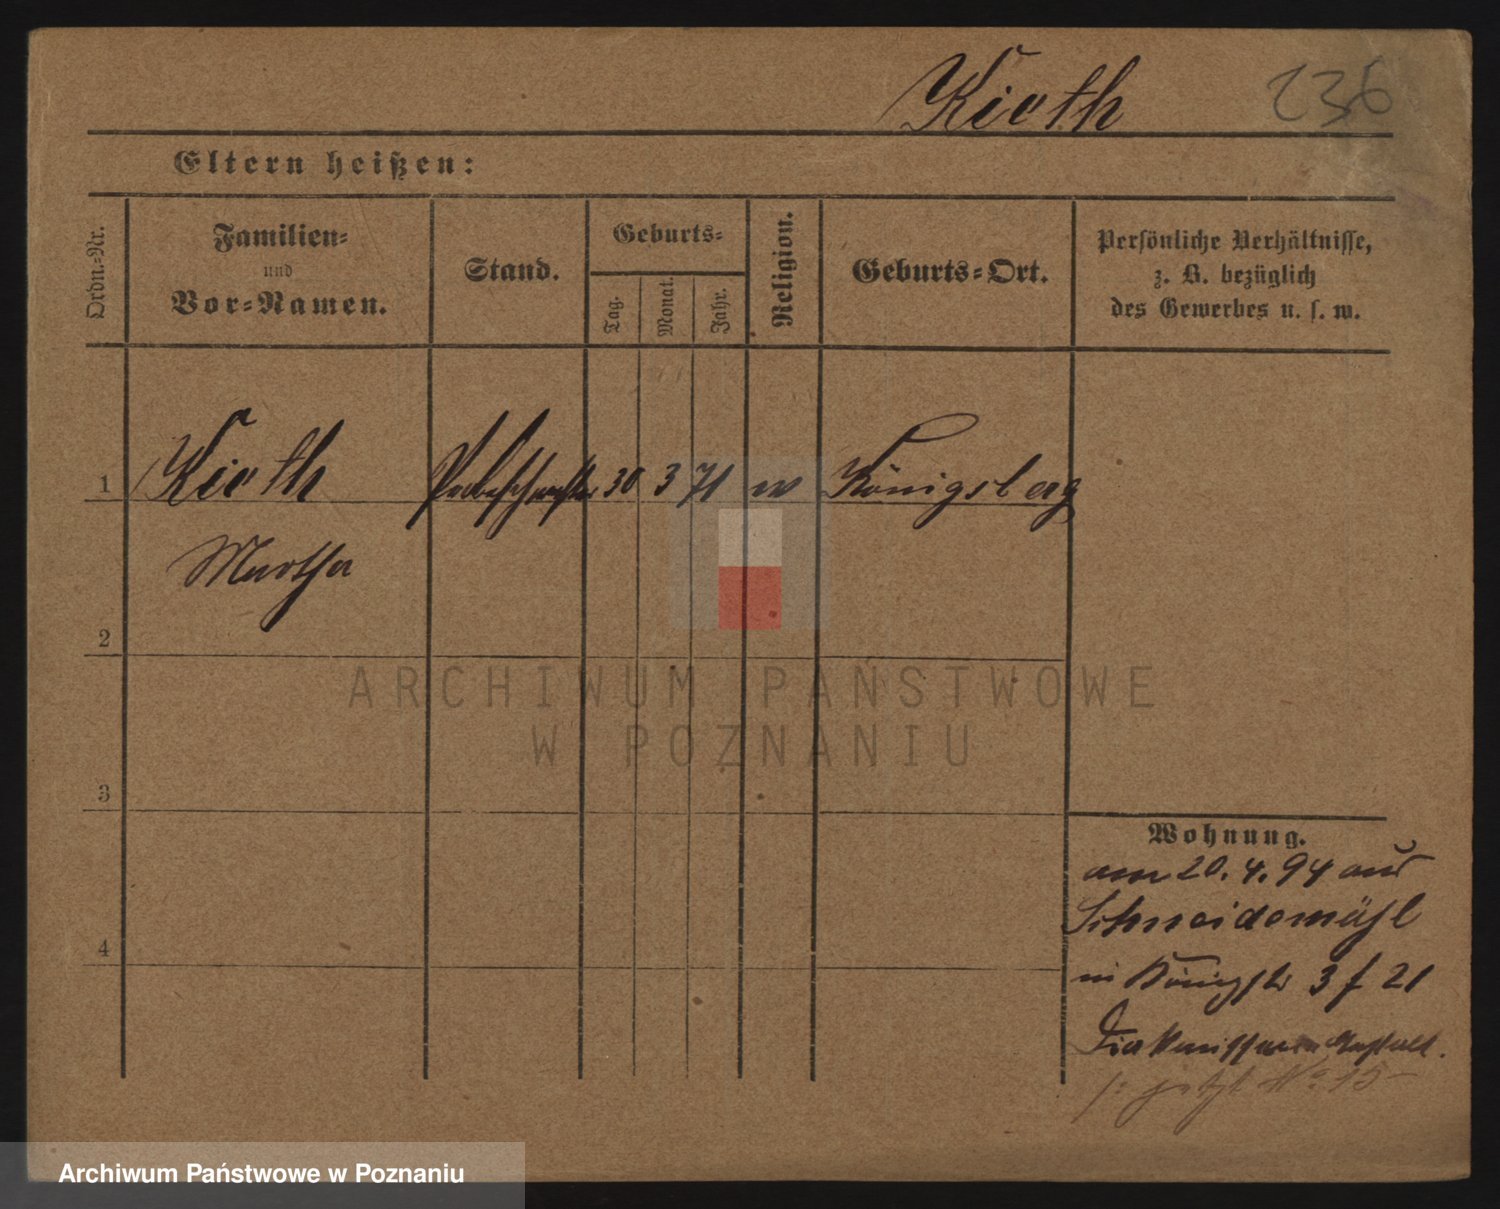 Kieth 236
Eltern heißen:
Ordn.-Nr.
Familien-
und
Vor-Namen.
Stand.
Geburts-
Tag.
Monat.
Jahr.
Religion.
Geburts-Ort.
Persönliche Verhältnisse,
z. B. bezüglich
des Gewerbes u. s. w.
1 Kieth Probeschwester 30 3 71 Königsberg
Martha
2
3
4
Wohnung.
am 20. 4. 94 aus
Schneidemühl
in Königstr 3 f 21
Diakonissen Anstalt.
jetzt No 15
ARCHIWUM PAŃSTWOWE
W POZNANIU
Archiwum Państwowe w Poznaniu